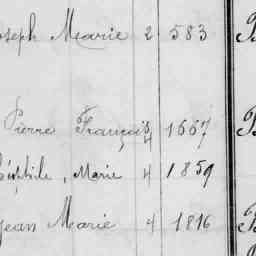 oseph Marie 2 583 B
Pierre François 4 1667 B
éophile, Marie 4 1859
Jean Marie 4 1816 B